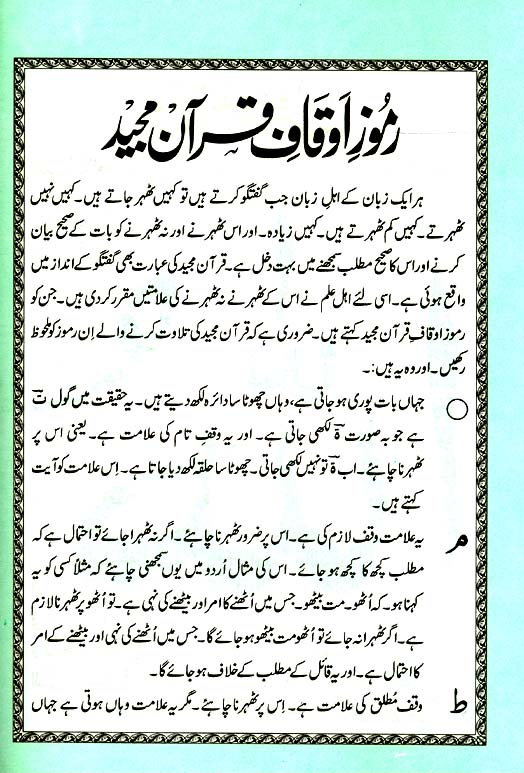 رُموزِ اَوقَافِ قرآن مجید
ہر ایک زبان کے اہلِ زبان جب گفتگو کرتے ہیں تو کہیں ٹھہر جاتے ہیں۔ کہیں نہیں
ٹھہرتے۔ کہیں کم ٹھہرتے ہیں۔ کہیں زیادہ۔ اور اس ٹھہرنے اور نہ ٹھہرنے کو بات کے صحیح بیان
کرنے اور اس کا صحیح مطلب سمجھنے میں بہت دخل ہے۔ قرآن مجید کی عبارت بھی گفتگو کے انداز میں
واقع ہوئی ہے۔ اسی لئے اہلِ علم نے اس کے ٹھہرنے نہ ٹھہرنے کی علامتیں مقرر کر دی ہیں۔ جن کو
رموز اوقافِ قرآن مجید کہتے ہیں۔ ضروری ہے کہ قرآن مجید کی تلاوت کرنے والے اِن رموز کو ملحوظ
رکھیں۔ اور وہ یہ ہیں:۔
○ جہاں بات پوری ہو جاتی ہے، وہاں چھوٹا سا دائرہ لکھ دیتے ہیں۔ یہ حقیقت میں گول ت
ہے جو بہ صورت ۃ لکھی جاتی ہے۔ اور یہ وقفِ تام کی علامت ہے۔ یعنی اس پر
ٹھہرنا چاہئے۔ اب ۃ تو نہیں لکھی جاتی۔ چھوٹا سا حلقہ لکھ دیا جاتا ہے۔ اِس علامت کو آیت
کہتے ہیں۔
م یہ علامت وقف لازم کی ہے۔ اس پر ضرور ٹھہرنا چاہئے۔ اگر نہ ٹھہرا جائے تو احتمال ہے کہ
مطلب کچھ کا کچھ ہو جائے۔ اس کی مثال اُردو میں یوں سمجھنی چاہئے کہ مثلاً کسی کو یہ
کہنا ہو۔ کہ اُٹھو۔ مت بیٹھو۔ جس میں اُٹھنے کا امر اور بیٹھنے کی نہی ہے۔ تو اُٹھو پر ٹھہرنا لازم
ہے۔ اگر ٹھہرا نہ جائے تو اُٹھو مت بیٹھو ہو جائے گا۔ جس میں اُٹھنے کی نہی اور بیٹھنے کے امر
کا احتمال ہے۔ اور یہ قائل کے مطلب کے خلاف ہو جائے گا۔
ط وقف مُطلق کی علامت ہے۔ اِس پر ٹھہرنا چاہئے۔ مگر یہ علامت وہاں ہوتی ہے جہاں